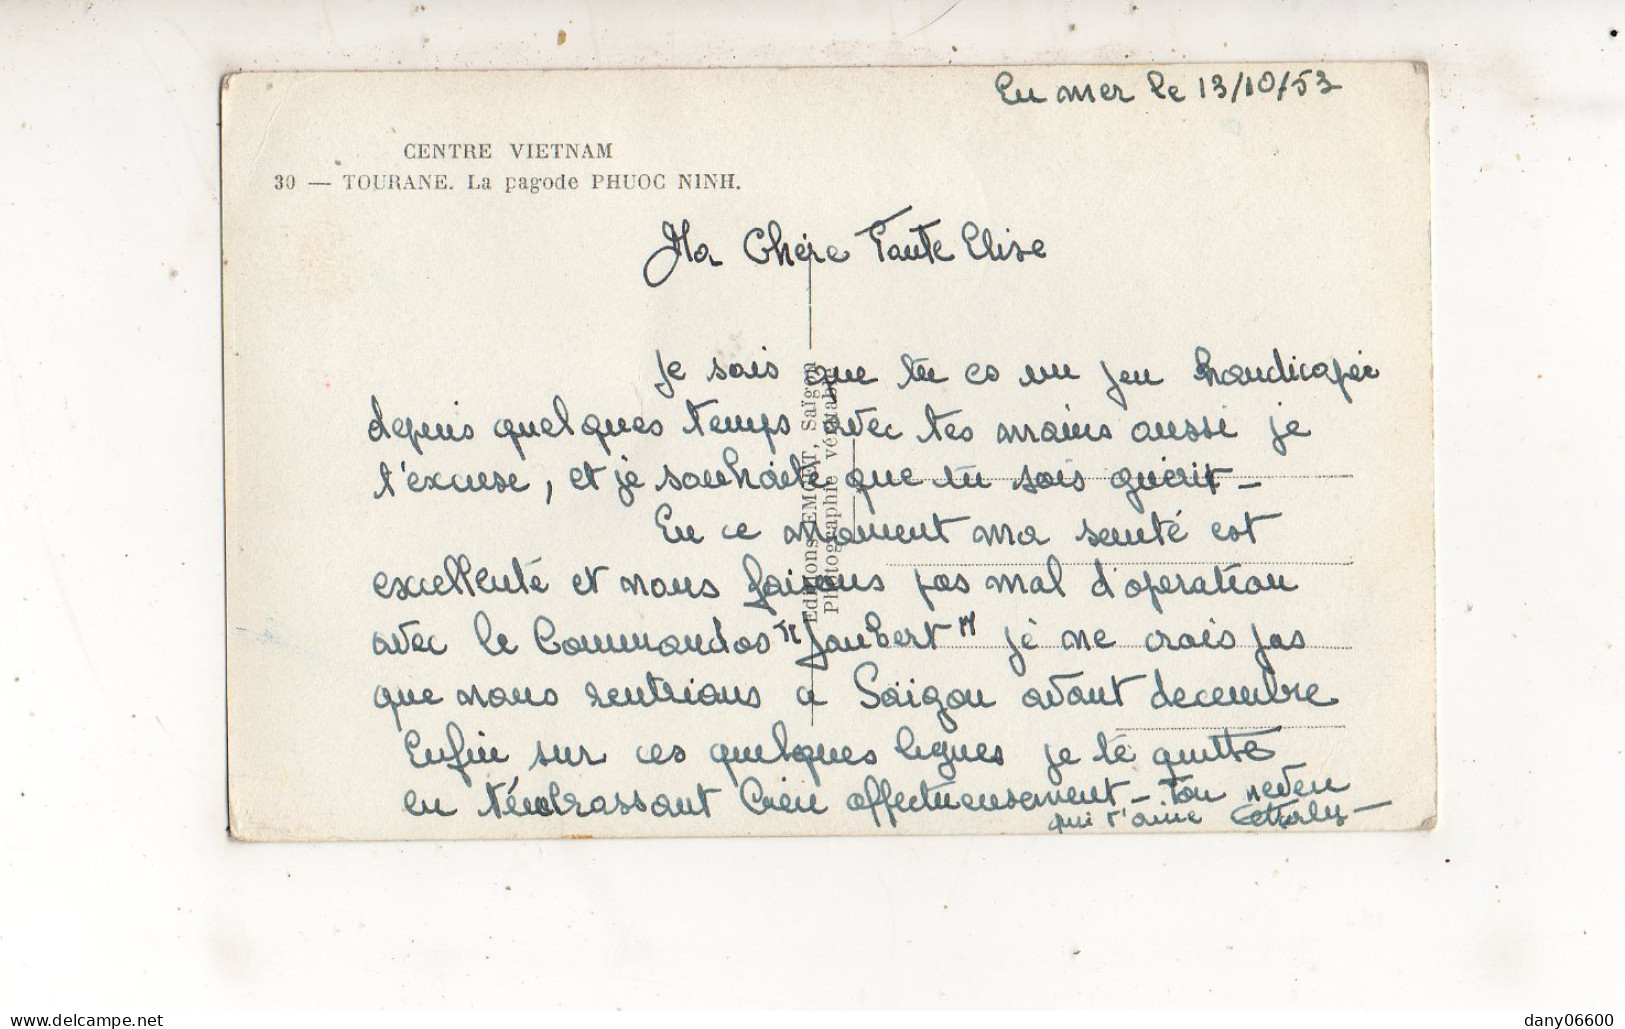 En mer le 13/10/53
CENTRE VIETNAM
30 — TOURANE. La pagode PHUOC NINH.
Ma Chère Tante Elise
je sais que tu es un peu handicapée
depuis quelques temps avec tes mains aussi je
t'excuse, et je souhaite que tu sois guérit –
En ce moment ma santé est
excellente et nous faisons pas mal d'operation
avec le Commandos "Jaubert" je ne crois pas
que nous rentrions a Saïgon avant decembre
Enfin sur ces quelques lignes je te quitte
en t'embrassant bien affectueusement – ton neveu
qui t'aime
Editions EMGET, Saïgon
Photographie véritable
delcampe.net
dany06600